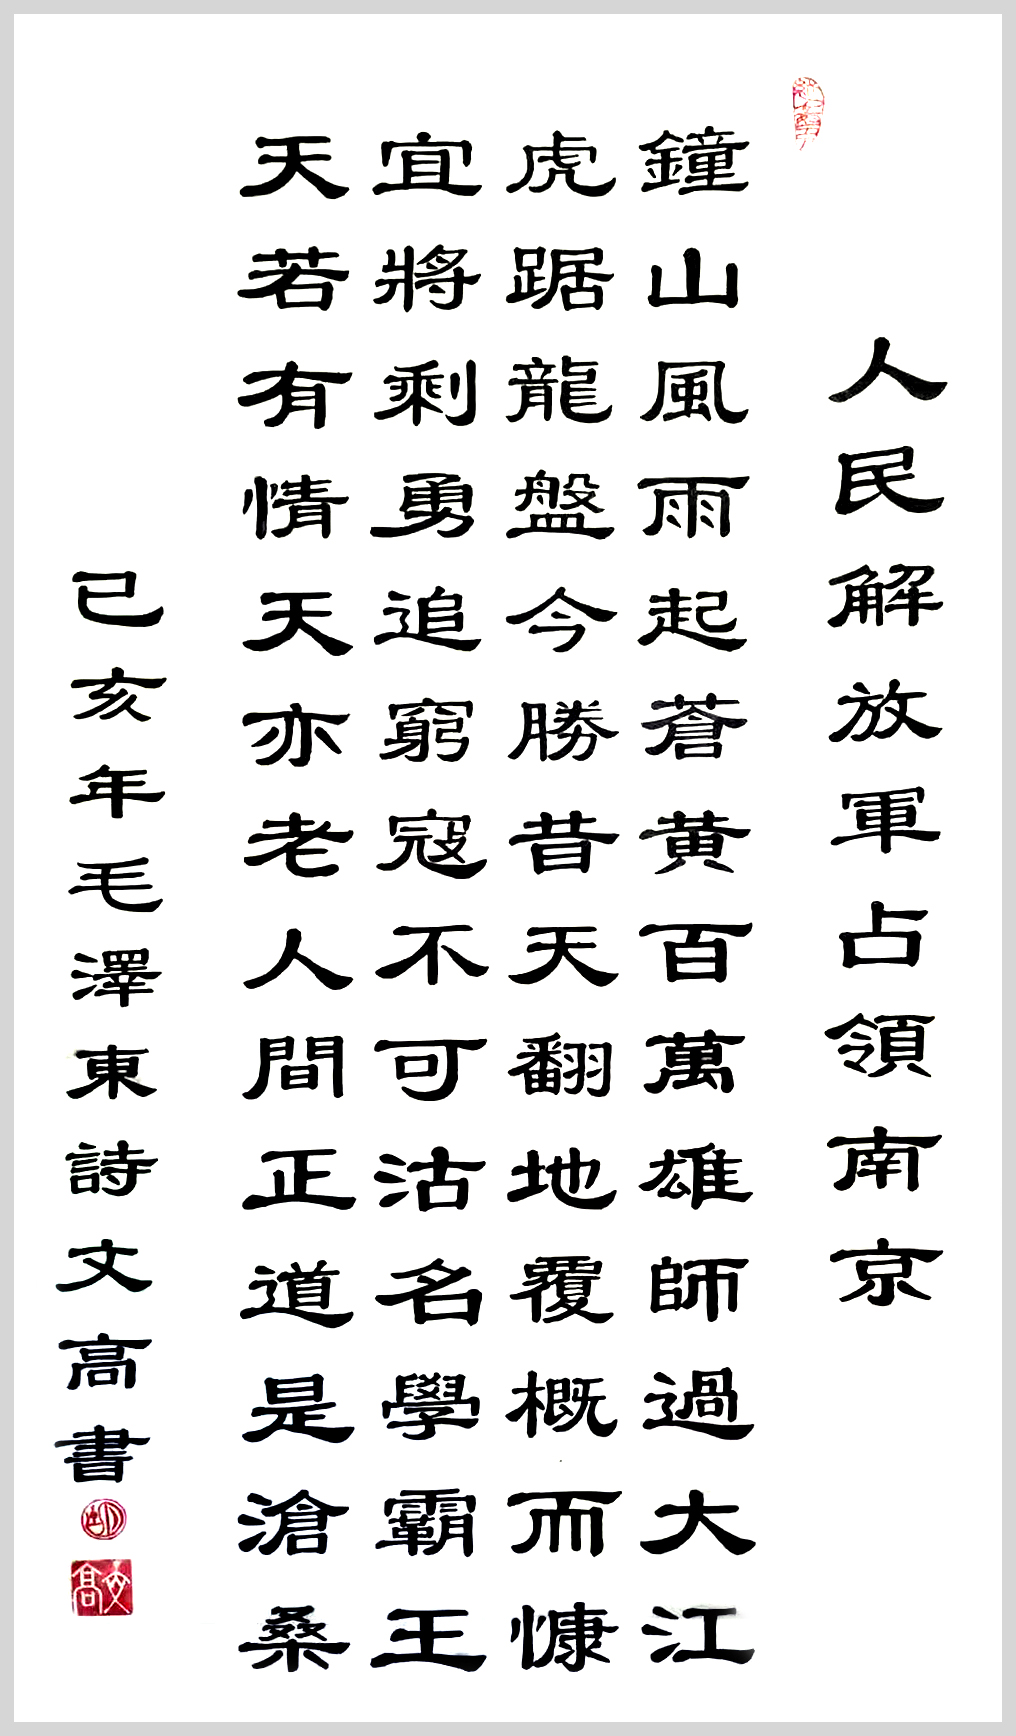 人民解放軍占領南京
鐘山風雨起蒼黄百萬雄師過大江
虎踞龍盤今勝昔天翻地覆概而慷
宜將剩勇追窮寇不可沽名學霸王
天若有情天亦老人間正道是滄桑
己亥年毛澤東詩文高書
文高